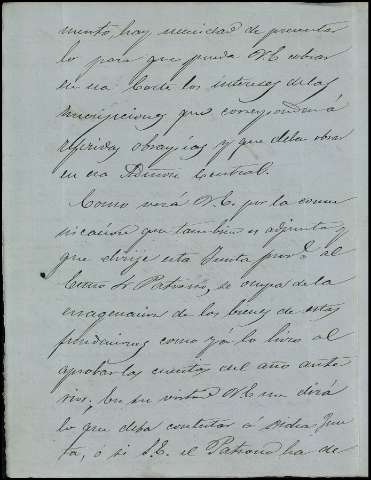 miento, hay necesidad de presentar
lo para que pueda V.E. cobrar
en esa Corte los intereses de las
inscripciones que corresponden á
referidas obras pías y que deben obrar
en esa Admon Central.
Como verá V.E. por la comu
nicación que también es adjunta y
que dirije esta Junta prov.l al
Excmo Sr Patrono, se ocupa de la
enagenación de los bienes de estas
fundaciones como yá lo hizo al
aprobar las cuentas del año ante
rior. En su virtud V.E. me dirá
lo que deba contestar á dicha Jun
ta, ó si S.E. el Patrono ha de